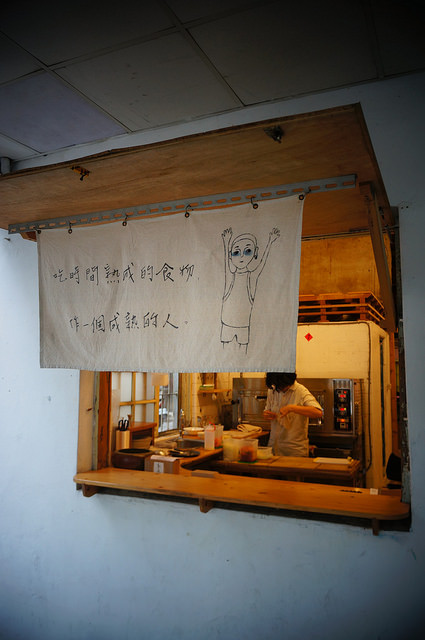 吃時間熟成的食物,
作一個成熟的人。